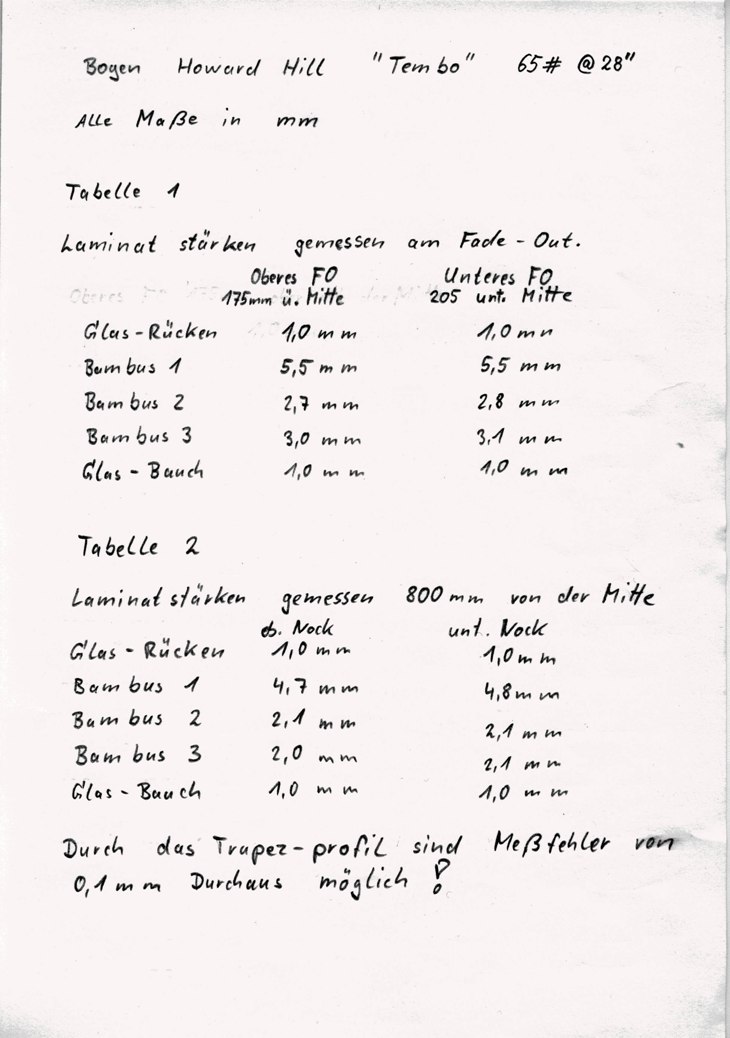 Bogen Howard Hill "Tembo" 65# @ 28"
Alle Maße in mm
Tabelle 1
Laminat stärken gemessen am Fade-Out.
Oberes FO Unteres FO
175mm ü. Mitte 205 unt. Mitte
Glas-Rücken 1,0 mm 1,0 mm
Bambus 1 5,5 mm 5,5 mm
Bambus 2 2,7 mm 2,8 mm
Bambus 3 3,0 mm 3,1 mm
Glas-Bauch 1,0 mm 1,0 mm
Tabelle 2
Laminat stärken gemessen 800mm von der Mitte
ob. Nock unt. Nock
Glas-Rücken 1,0 mm 1,0 mm
Bambus 1 4,7 mm 4,8 mm
Bambus 2 2,1 mm 2,1 mm
Bambus 3 2,0 mm 2,1 mm
Glas-Bauch 1,0 mm 1,0 mm
Durch das Trapez-profil sind Meßfehler von
0,1 mm Durchaus möglich !